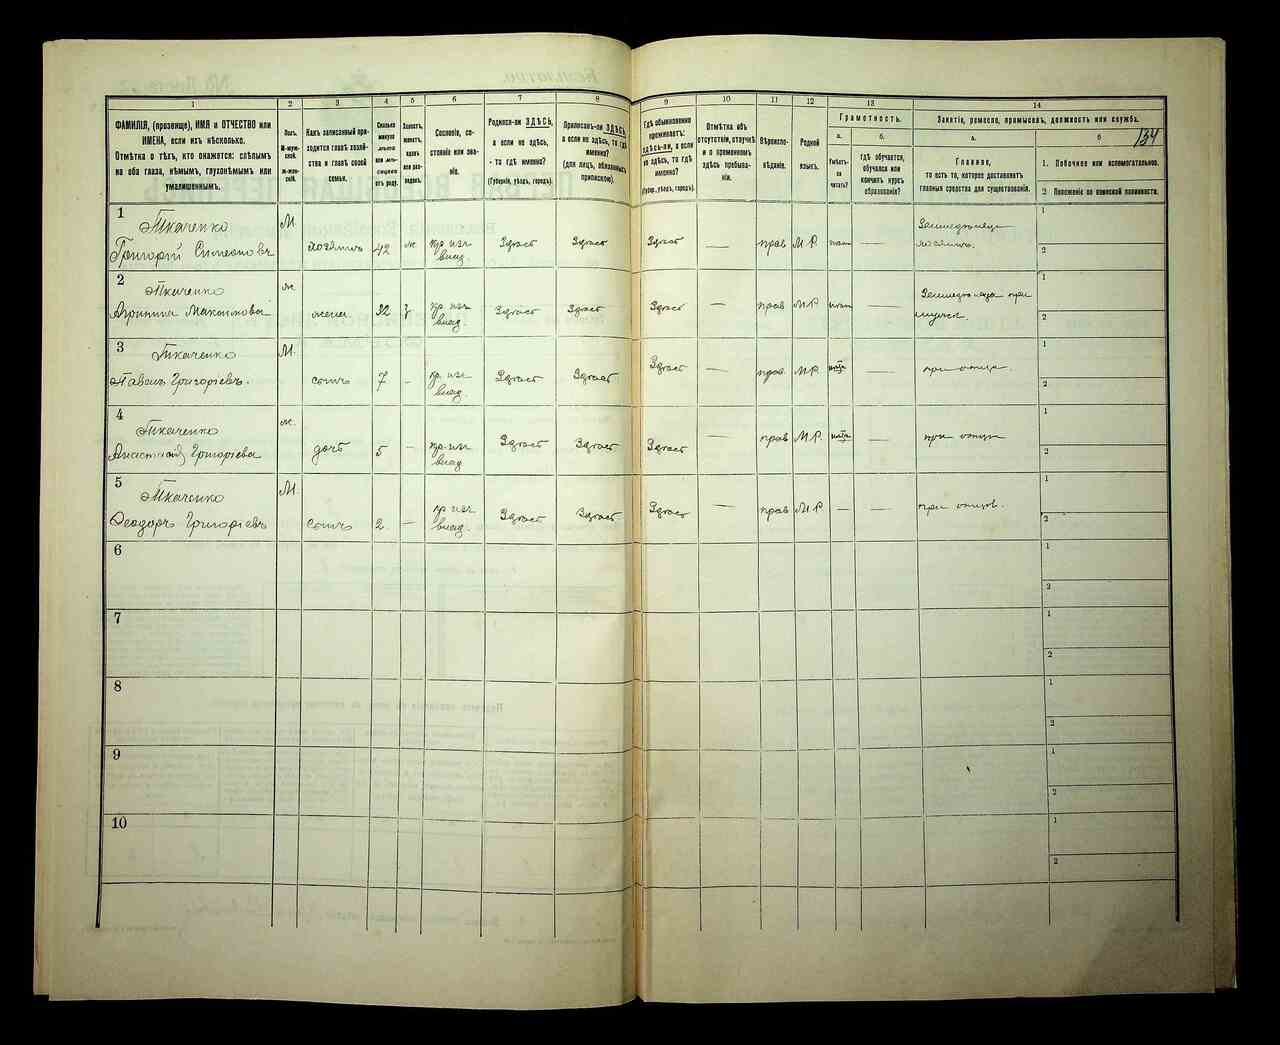 1
2
3
4
5
6
7
8
9
10
11
12
13
14
134
ФАМИЛІЯ, (прозвище), ИМЯ и ОТЧЕСТВО или
ИМЕНА, если ихъ нѣсколько.
Отмѣтка о тѣхъ, кто окажется: слѣпымъ
на оба глаза, нѣмымъ, глухонѣмымъ или
умалишеннымъ.
Полъ.
М-муж-
ской.
Ж-жен-
скій.
Какъ записанный при-
ходится главѣ хозяй-
ства и главѣ своей
семьи.
Сколько
минуло
лѣтъ
или мѣ-
сяцевъ
отъ роду.
Холостъ,
женатъ,
вдовъ
или раз-
веденъ.
Сословіе, со-
стояніе или зва-
ніе.
Родился-ли ЗДѢСЬ,
а если не здѣсь,
-то гдѣ именно?
(Губернія, уѣздъ, городъ).
Приписанъ-ли ЗДѢСЬ,
а если не здѣсь, то гдѣ
именно?
(для лицъ, обязанныхъ
припискою).
Гдѣ обыкновенно
проживаетъ:
здѣсь-ли, а если
не здѣсь, то гдѣ
именно?
(Губерн., уѣздъ, городъ).
Отмѣтка объ
отсутствіи, отлучкѣ
и о временномъ
здѣсь пребыва-
ніи.
Вѣроиспо-
вѣданіе.
Родной
языкъ.
Грамотность.
а.
Умѣетъ-
ли
читать?
б.
гдѣ обучается,
обучался или
кончилъ курсъ
образованія?
Занятіе, ремесло, промыселъ, должность или служба.
а.
Главное,
то есть то, которое доставляетъ
главныя средства для существованія.
б
1. Побочное или вспомогательное.
2 Положеніе по воинской повинности.
1
Ткаченко
Григорій Симеоновъ
М.
хозяинъ 42 ж кр. изъ влад 
Здѣсь Здѣсь Здѣсь — прав М.Р. — 
1
2
2
Ткаченко
Агрипина Максимова
ж
жена 32 з кр. изъ влад
Здѣсь Здѣсь Здѣсь — прав М.Р. —
1
2
3
Ткаченко
Павелъ Григорьевъ.
М.
сынъ 7 - кр. изъ влад.
Здѣсь Здѣсь Здѣсь — прав М.Р. — при отцѣ.
1
2
4
Ткаченко
Анастасія Григорьева
ж.
дочь 5 - кр. изъ влад
Здѣсь Здѣсь Здѣсь — прав М.Р. — при отцѣ
1
2
5
Ткаченко
Ѳеодоръ Григорьевъ
М.
сынъ 2. - кр изъ влад.
Здѣсь Здѣсь Здѣсь — прав М.Р. — — при отцѣ.
1
2
6
1
2
7
1
2
8
1
2
9
1
2
10
1
2